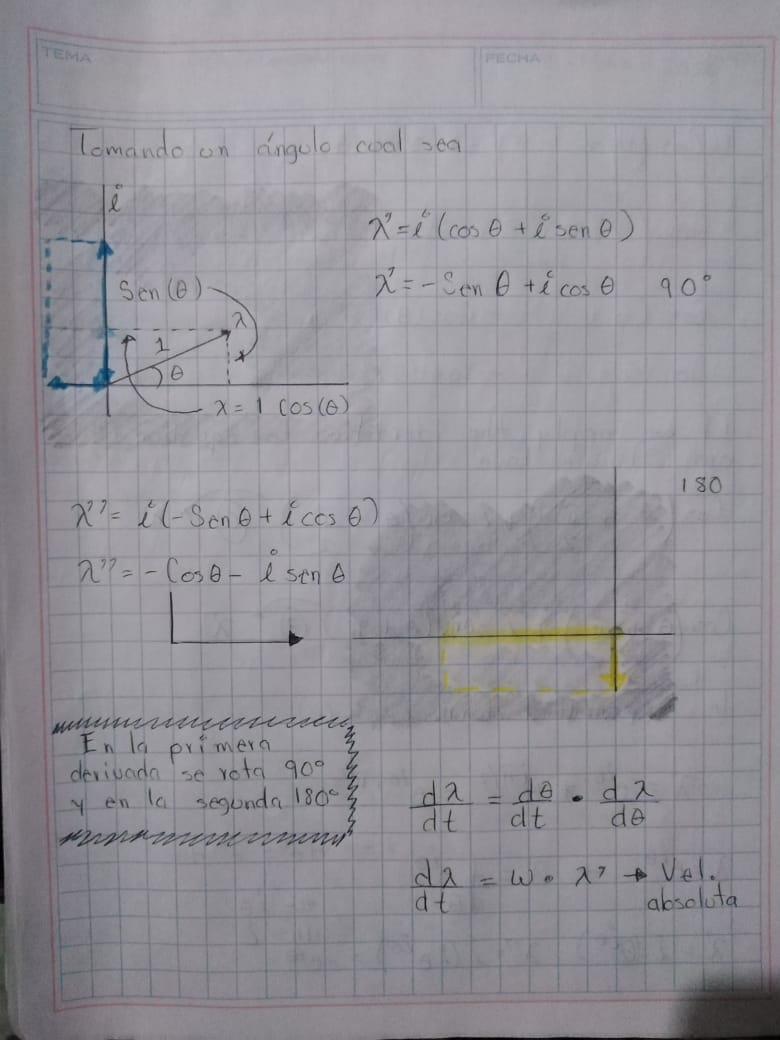 TEMA
FECHA
Tomando un ángulo cual sea
i
λ' = i (cos θ + i sen θ)
Sen (θ)
λ' = - Sen θ + i cos θ 90°
λ
1
θ
λ = 1 Cos(θ)
180
λ'' = i (- Sen θ + i cos θ)
λ'' = - Cos θ - i sen θ
En la primera
derivada se rota 90°
y en la segunda 180°
dλ/dt = dθ/dt • dλ/dθ
dλ/dt = ω • λ' → Vel.
absoluta